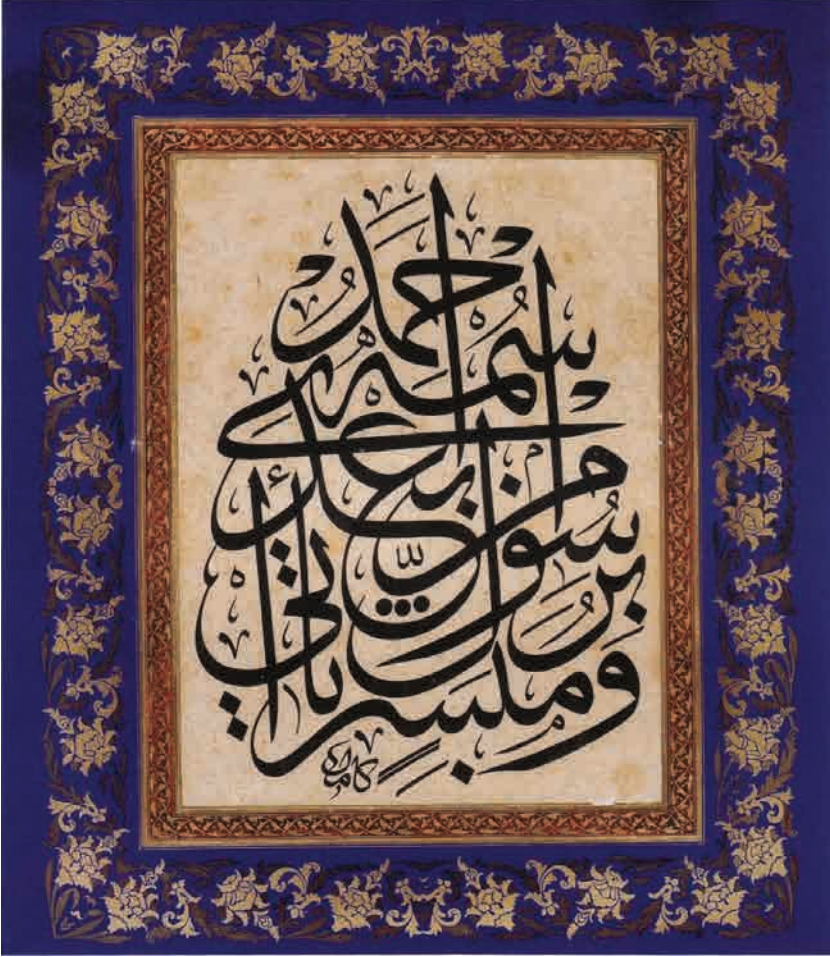 وَمُبَشِّرًا بِرَسُولٍ يَأْتِي مِنْ بَعْدِي اسْمُهُ أَحْمَدُ
كامل